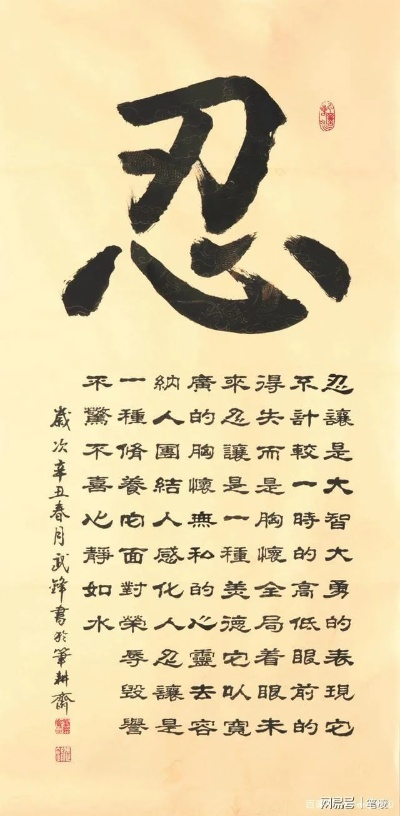 忍
忍讓是大智大勇的表現它
不計較一時的高低眼前的
得失而是胸懷全局着眼未
來忍讓是一種美德它以寬
廣的胸懷無私的心靈去容
納人團結人感化人忍讓是
一種脩養它面對榮辱毀譽
不驚不喜心靜如水
歲次辛丑春月武鋒書於筆耕齋
网易号 | 笔凌